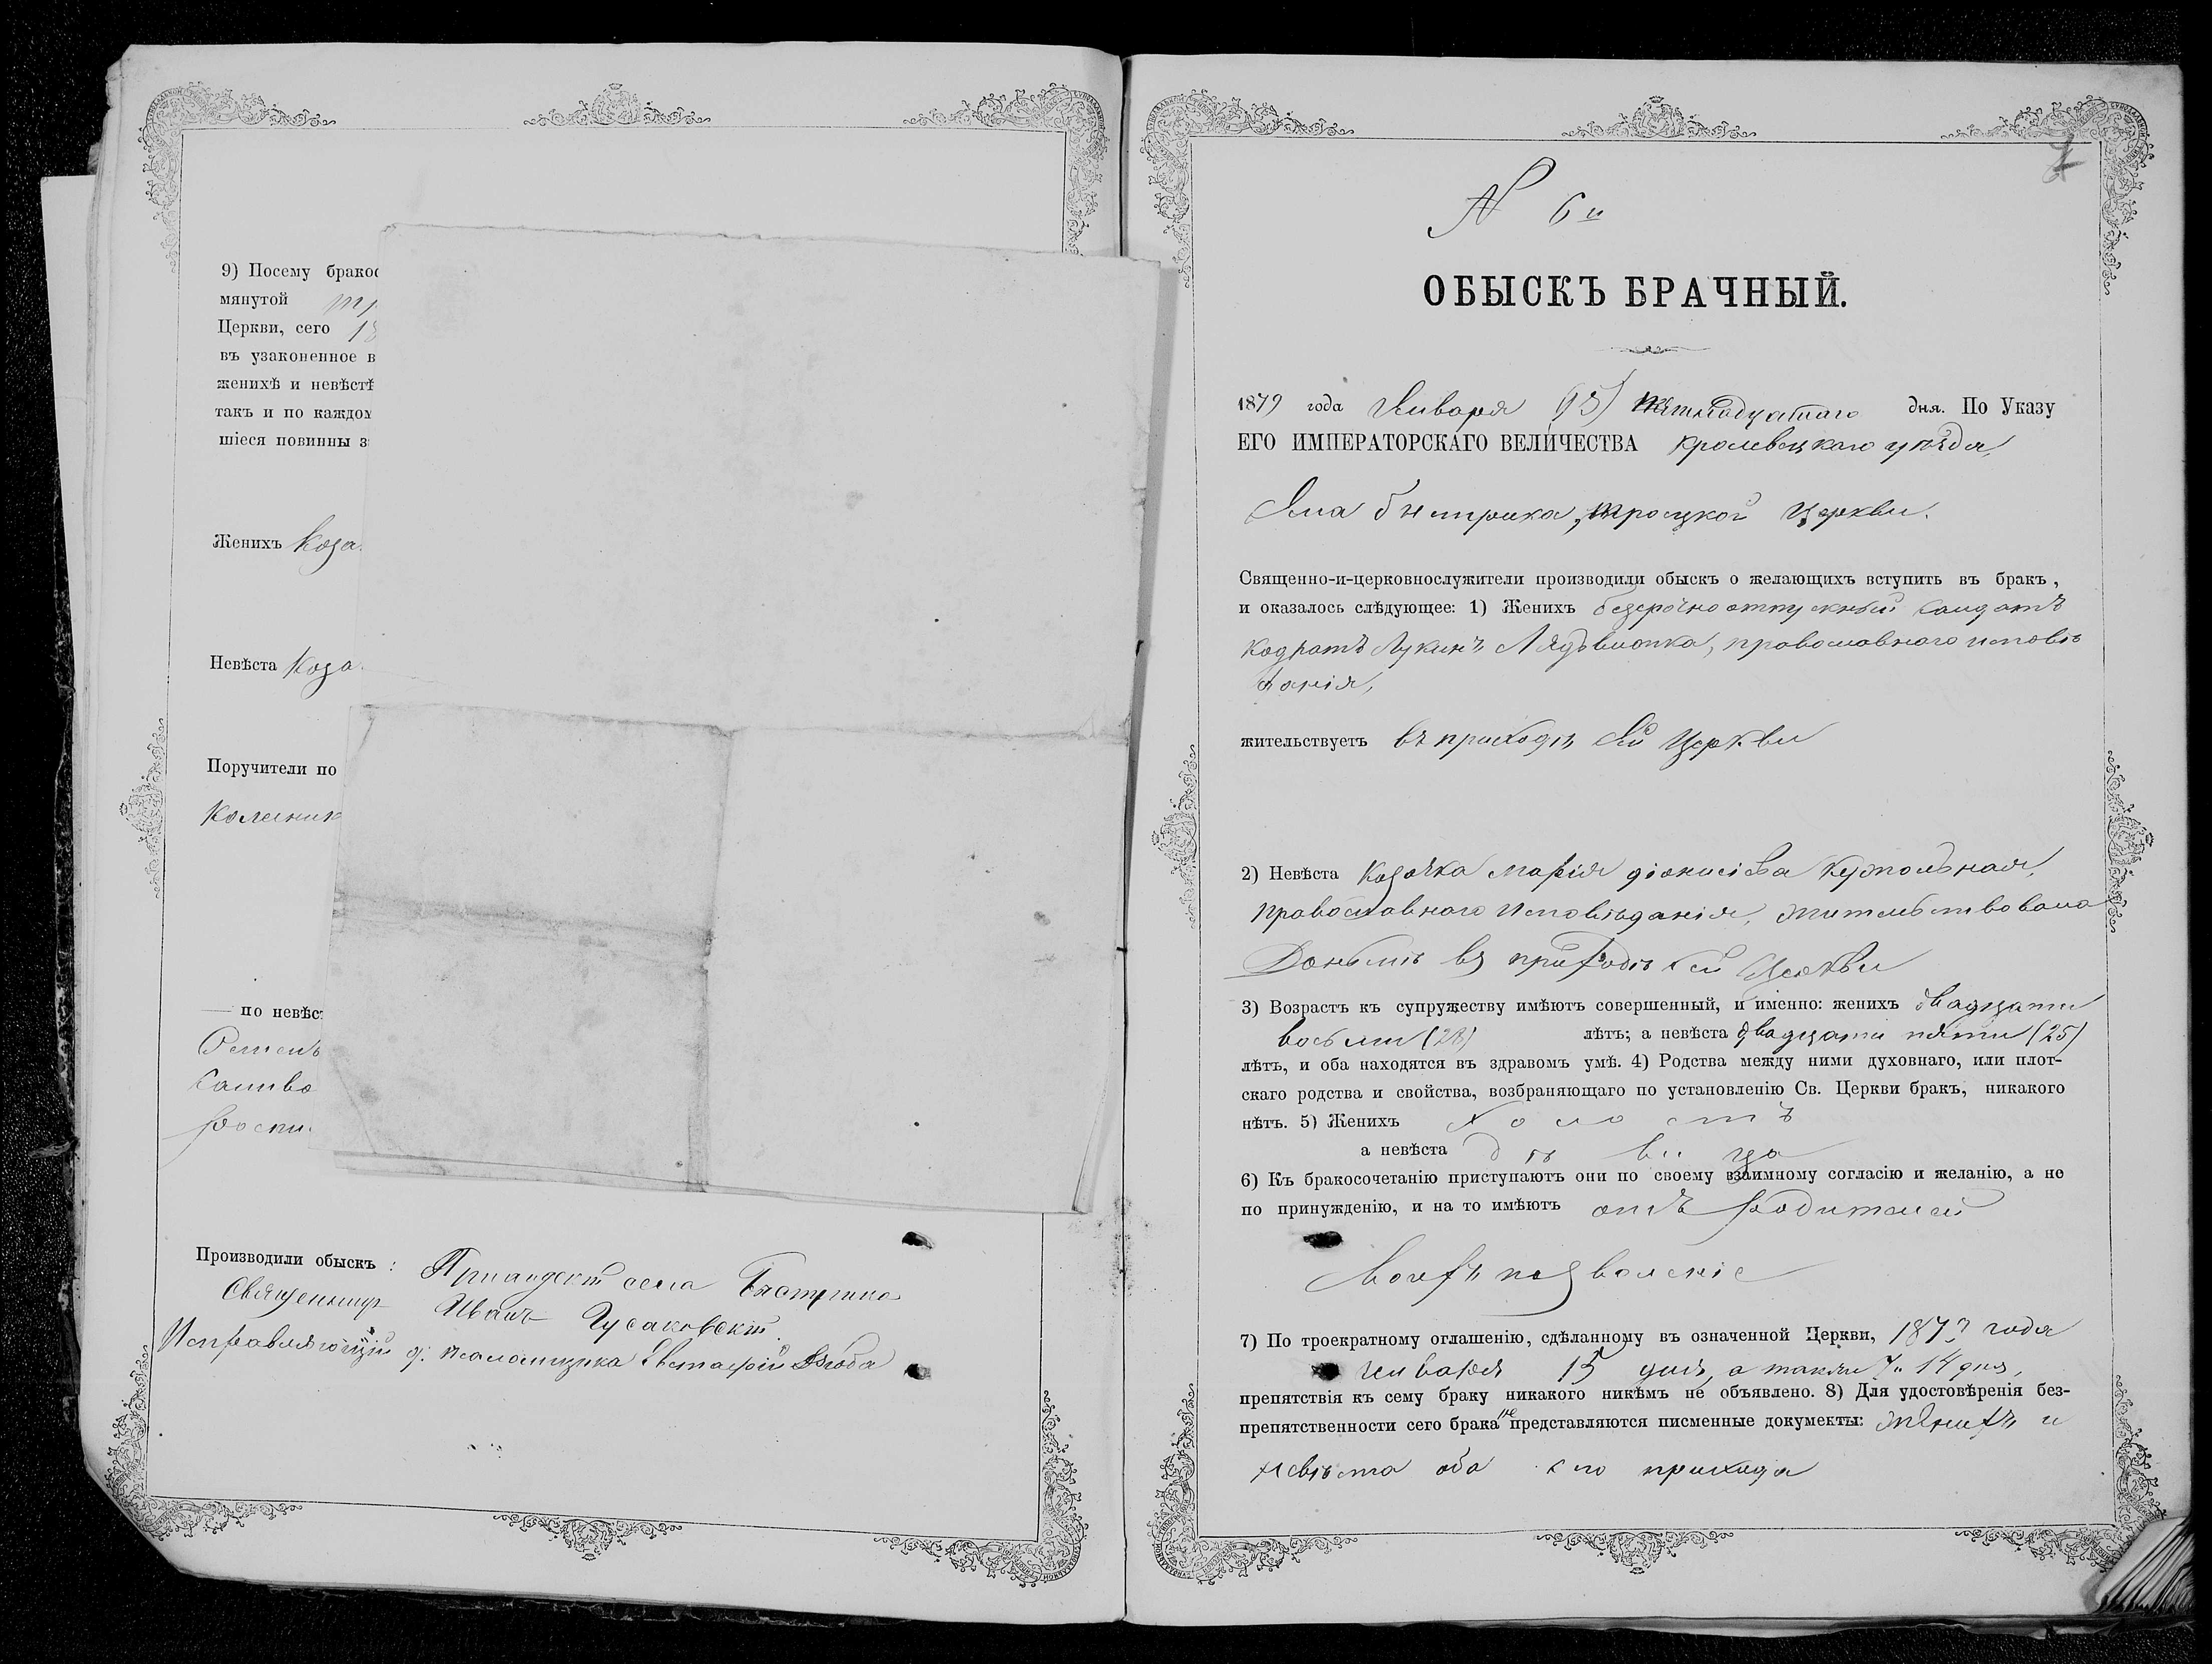 9) Посему бракос
мянутой
Церкви, сего 18
въ узаконенное в
женихѣ и невѣстѣ
такъ и по каждом
шіеся повинны з
Женихъ Коза
Невѣста Коза
Поручители по
Колесник
по невѣс
роспи
Производили обыскъ:
Священникъ Иванъ Гусаковскій
Исправляющій д. псаломщика Евстафій Дзюба
№ 6й
ОБЫСКЪ БРАЧНЫЙ.
1879 года Января 15) пятнадцатаго дня. По Указу
ЕГО ИМПЕРАТОРСКАГО ВЕЛИЧЕСТВА Кролевецкаго уѣзда,
Села Быстрика, Троицкой Церкви.
Священно-и-церковнослужители производили обыскъ о желающихъ вступить въ бракъ,
и оказалось слѣдующее: 1) Женихъ безсрочно отпускный солдатъ
Кодратъ Лукинъ православного исповѣ
данія,
жительствуетъ въ приходѣ сей Церкви
2) Невѣста Козачка Марія Діонисіева
православного исповѣданія, жительствовала
Донынѣ въ приходѣ сей Церкви
3) Возрастъ къ супружеству имѣютъ совершенный, и именно: женихъ двадцати
восьми (28) лѣтъ; а невѣста двадцати пяти (25)
лѣтъ, и оба находятся въ здравомъ умѣ. 4) Родства между ними духовнаго, или плот-
скаго родства и свойства, возбраняющаго по установленію Св. Церкви бракъ, никакого
нѣтъ. 5) Женихъ холостъ
а невѣста дѣвица
6) Къ бракосочетанію приступаютъ они по своему взаимному согласію и желанію, а не
по принужденію, и на то имѣютъ отъ родителей
своихъ позволеніе
7) По троекратному оглашенію, сдѣланному въ означенной Церкви, 1879 года
Генваря 13 дня, а также 7 и 14 дня,
препятствія къ сему браку никакого никѣмъ не объявлено. 8) Для удостовѣренія без-
препятственности сего брака не представляются писменные документы: женихъ и
невѣста оба сего прихода